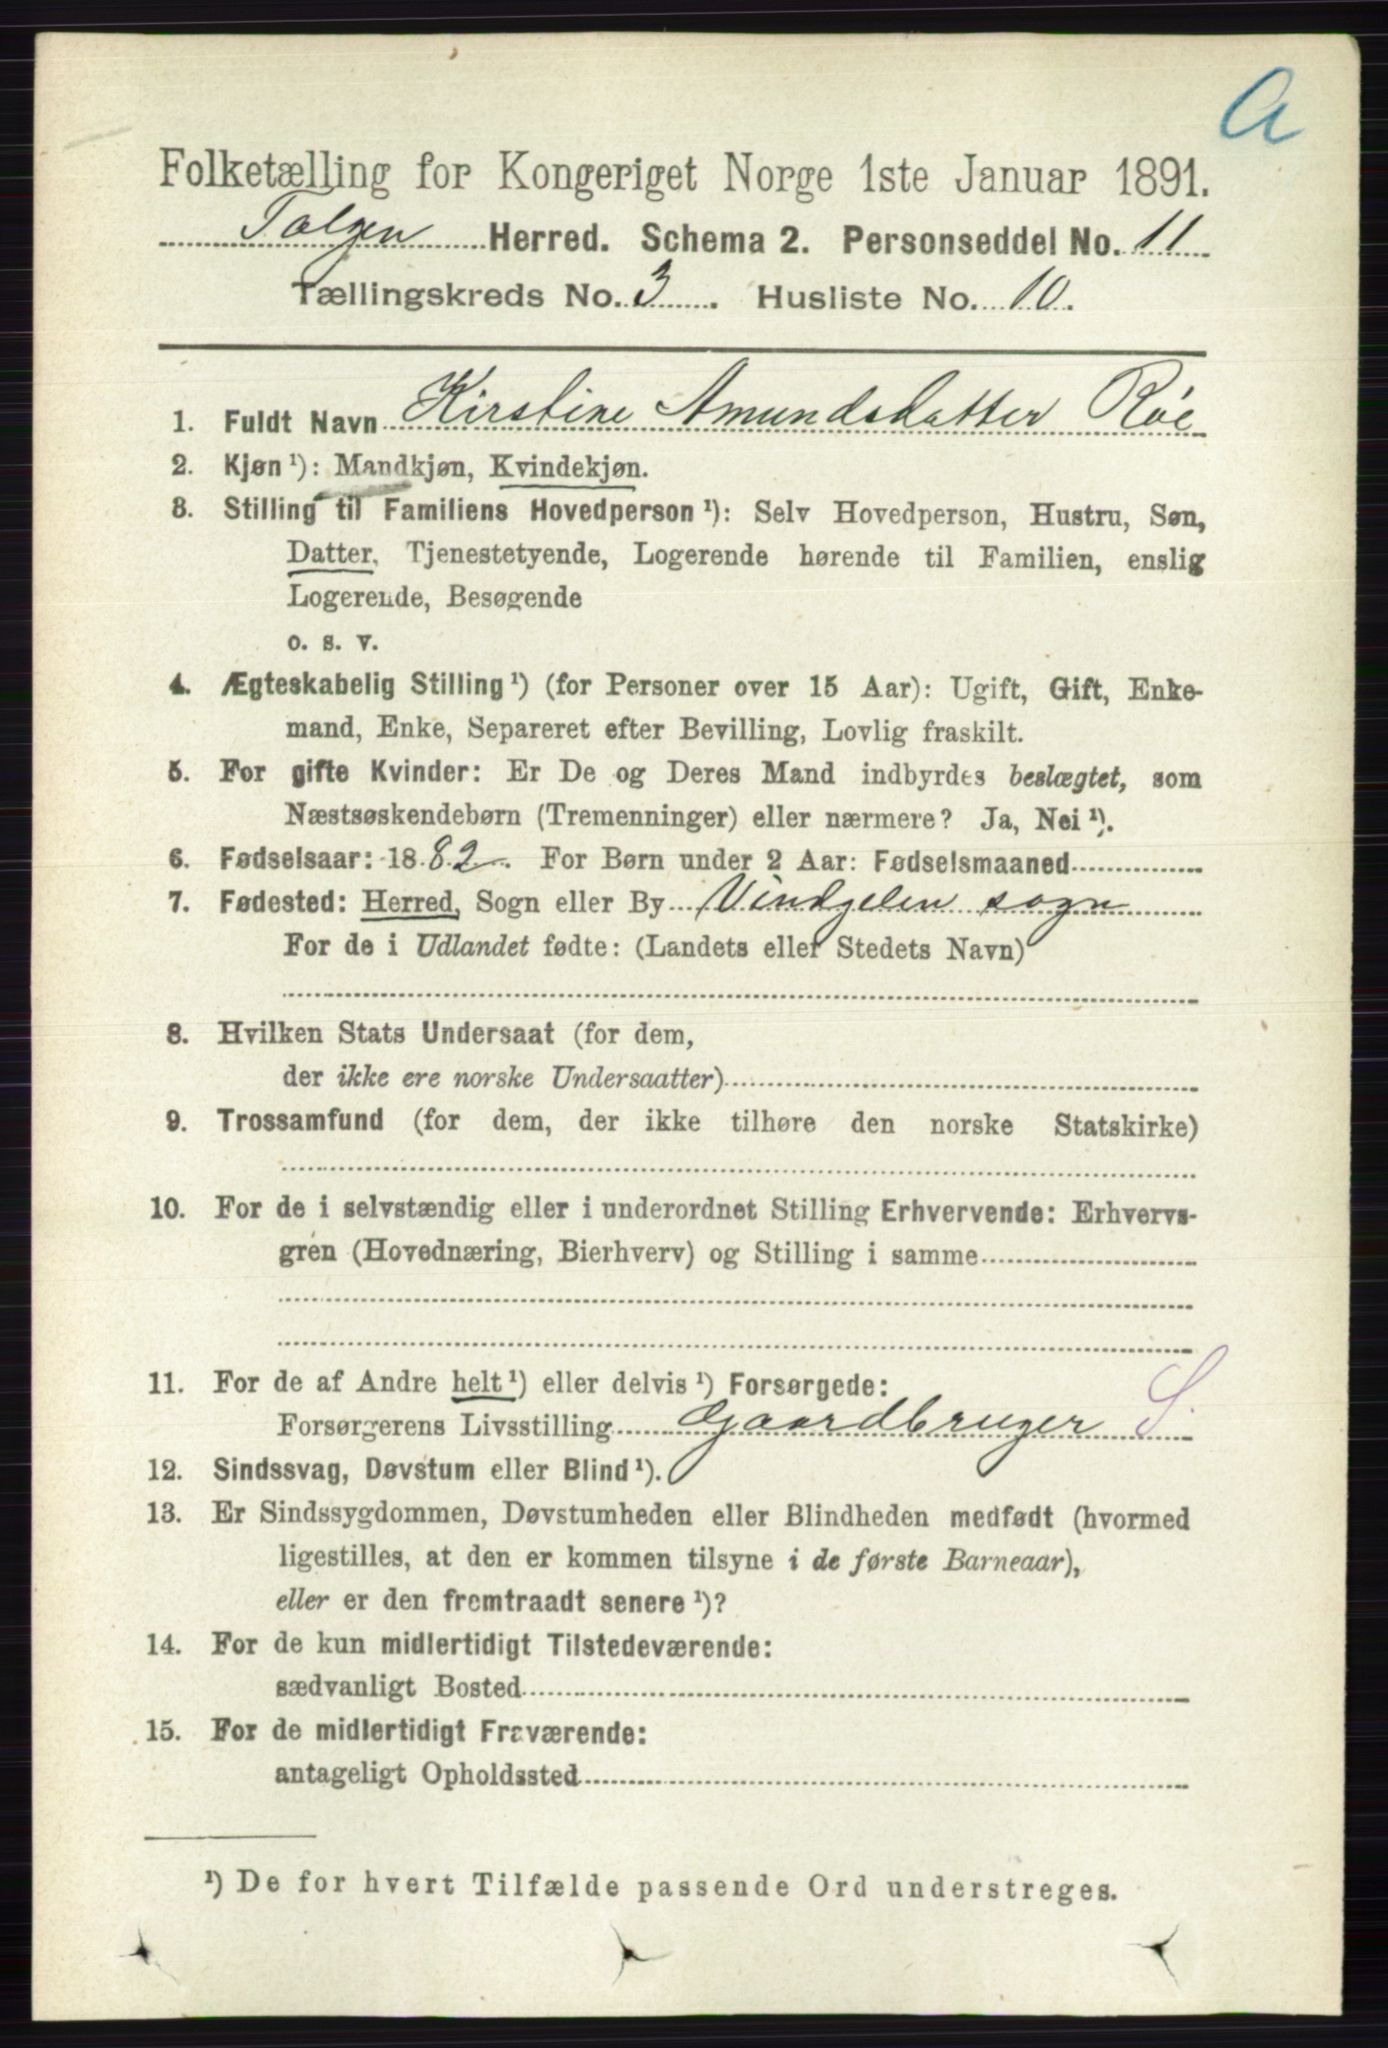 a
Folketælling for Kongeriget Norge 1ste Januar 1891.
Tolgen Herred. Schema 2. Personseddel No. 11
Tællingskreds No. 3. Husliste No. 10.
1. Fuldt Navn Kirstine Amundsdatter Røe
2. Kjøn ¹): Mandkjøn, Kvindekjøn.
3. Stilling til Familiens Hovedperson ¹): Selv Hovedperson, Hustru, Søn,
Datter, Tjenestetyende, Logerende hørende til Familien, enslig
Logerende, Besøgende
o. s. v.
4. Ægteskabelig Stilling ¹) (for Personer over 15 Aar): Ugift, Gift, Enke-
mand, Enke, Separeret efter Bevilling, Lovlig fraskilt.
5. For gifte Kvinder: Er De og Deres Mand indbyrdes beslægtet, som
Næstsøskendebørn (Tremenninger) eller nærmere? Ja, Nei ¹).
6. Fødselsaar: 1882. For Børn under 2 Aar: Fødselsmaaned
7. Fødested: Herred, Sogn eller By Vindgelen sogn
For de i Udlandet fødte: (Landets eller Stedets Navn)
8. Hvilken Stats Undersaat (for dem,
der ikke ere norske Undersaatter)
9. Trossamfund (for dem, der ikke tilhøre den norske Statskirke)
10. For de i selvstændig eller i underordnet Stilling Erhvervende: Erhvervs-
gren (Hovednæring, Bierhverv) og Stilling i samme
11. For de af Andre helt ¹) eller delvis ¹) Forsørgede:
Forsørgerens Livsstilling Gaardbruger S.
12. Sindssvag, Døvstum eller Blind ¹).
13. Er Sindssygdommen, Døvstumheden eller Blindheden medfødt (hvormed
ligestilles, at den er kommen tilsyne i de første Barneaar),
eller er den fremtraadt senere ¹)?
14. For de kun midlertidigt Tilstedeværende:
sædvanligt Bosted
15. For de midlertidigt Fraværende:
antageligt Opholdssted
¹) De for hvert Tilfælde passende Ord understreges.